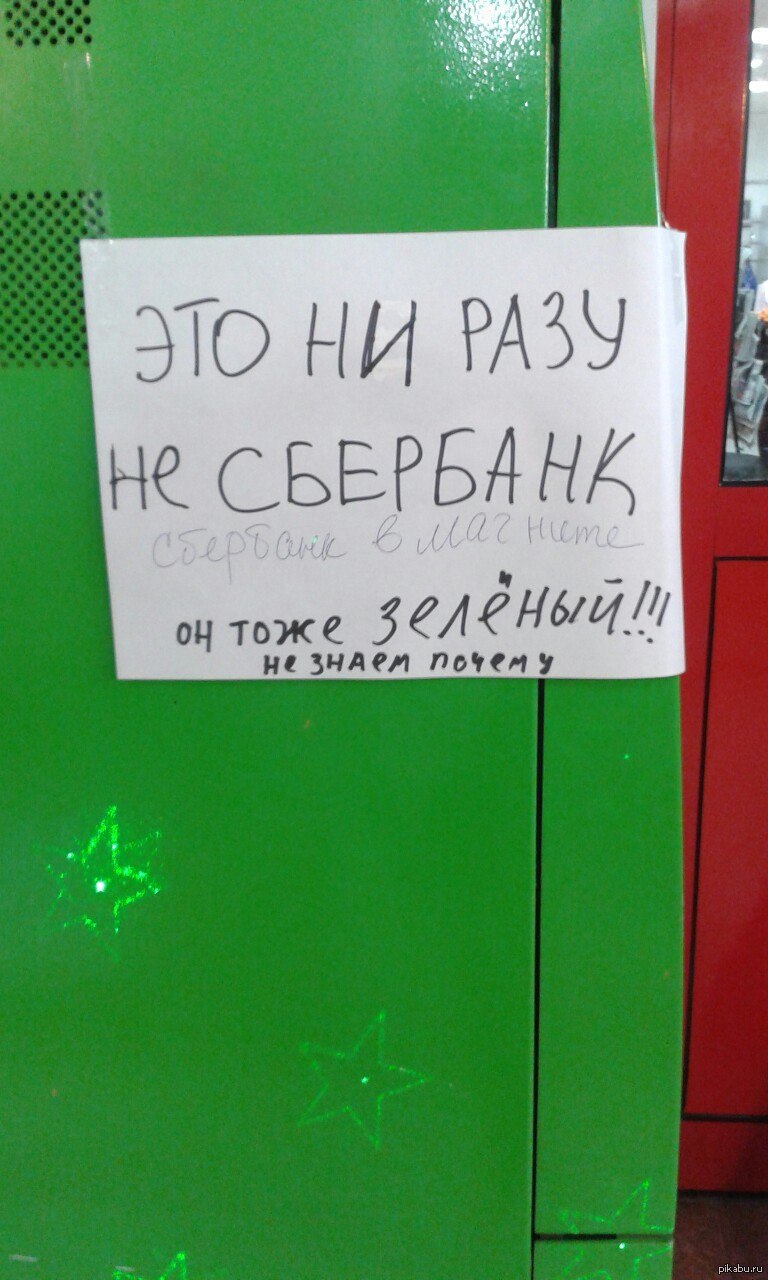 ЭТО НИ РАЗУ
Не СБЕРБАНК
сбербанк в магните
он тоже зелёный!!!
не знаем почему
pikabu.ru